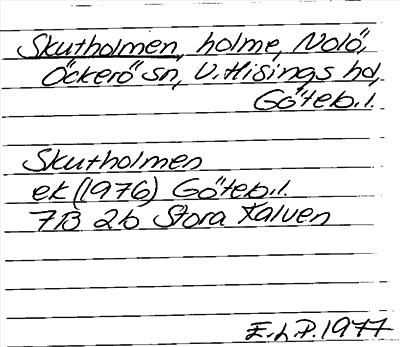 Skutholmen, holme, Nolö,
Öckerö sn, V. Hisings hd,
Göteb. l.
Skutholmen
ek (1976) Göteb. l.
7B 2b Stora Kalven
E. L. P. 1977